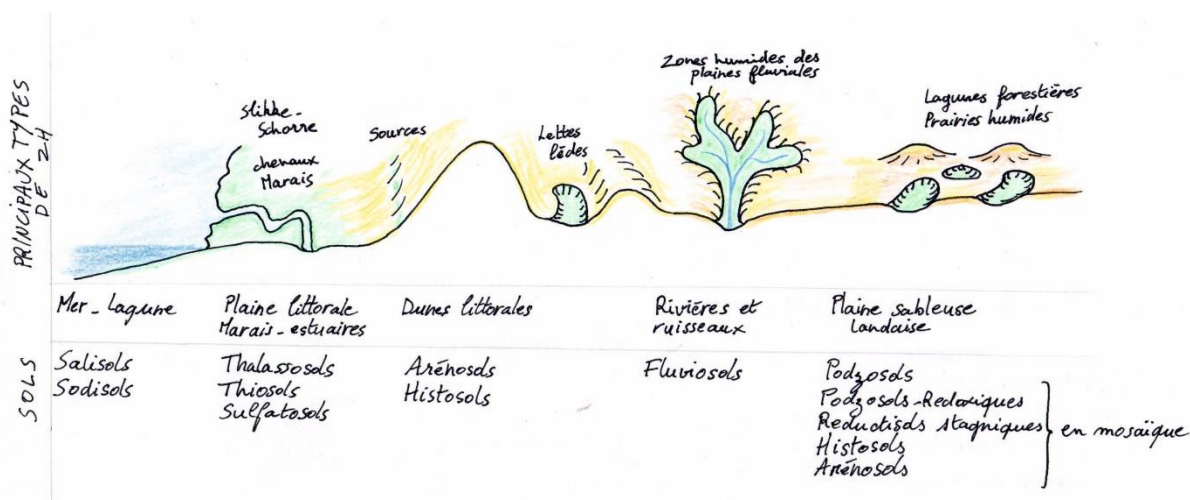 PRINCIPAUX TYPES
DE ZH
Slikke-
Schorre
chenaux
Marais
Sources
Lettes
lèdes
Zones humides des
plaines fluviales
Lagunes forestières
Prairies humides
Mer - Lagune
Plaine littorale
Marais - estuaires
Dunes littorales
Rivières et
ruisseaux
Plaine sableuse
landaise
SOLS
Salisols
Sodisols
Thalassosols
Thiosols
Sulfatosols
Arénosols
Histosols
Fluviosols
Podzosols
Podzosols-Redoxiques
Reductisols stagniques
Histosols
Arénosols
en mosaïque